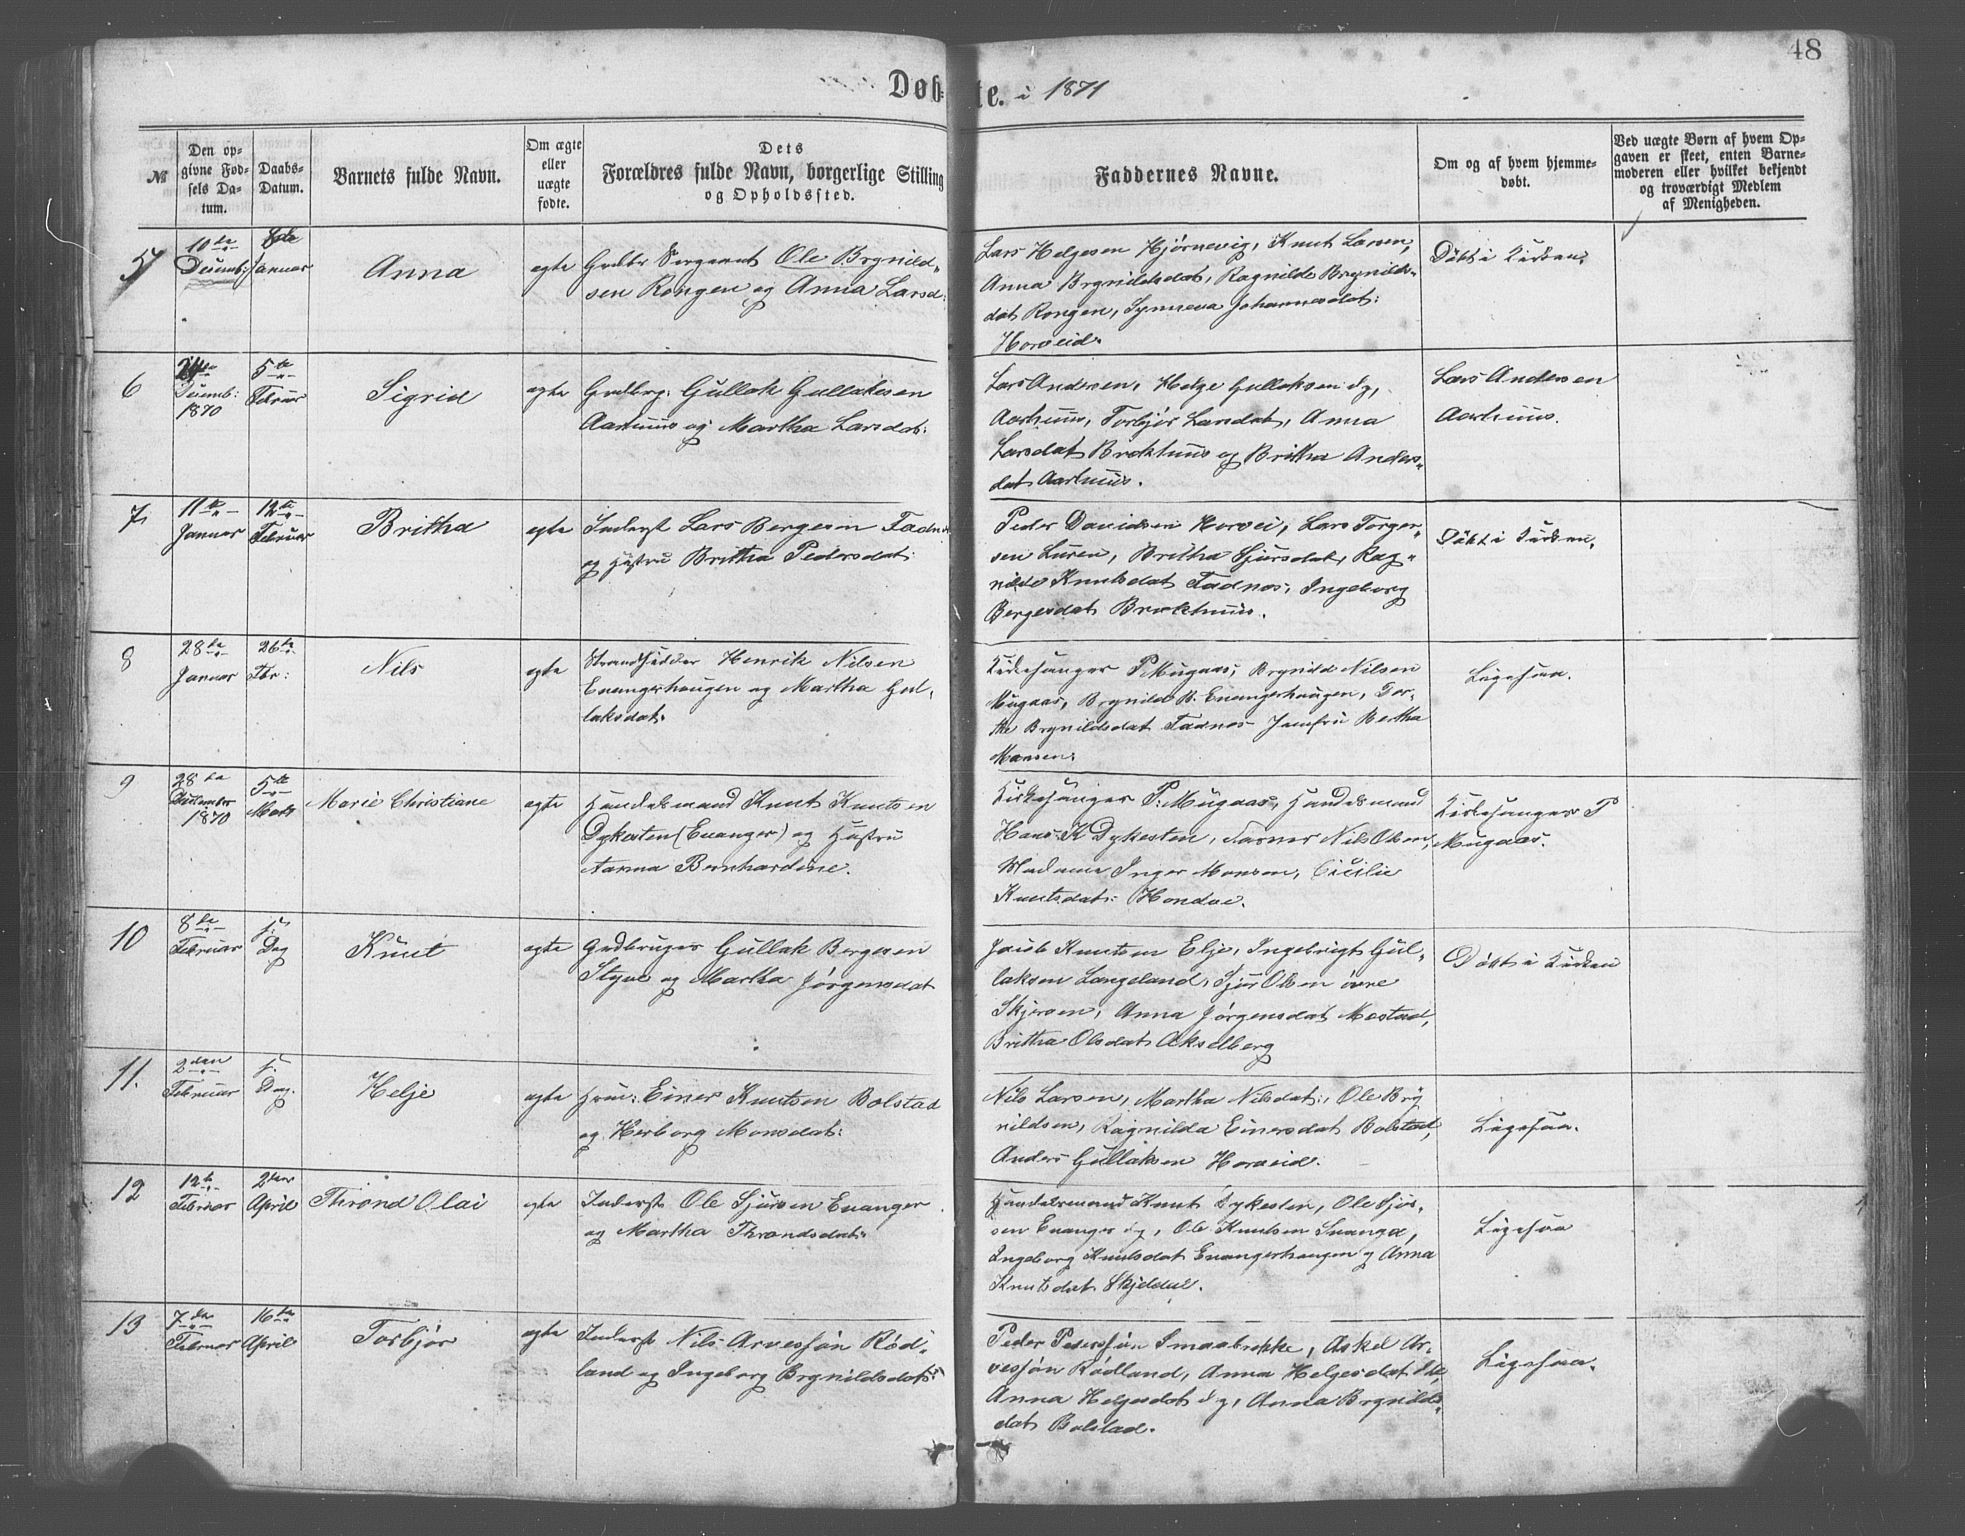 48
Døbte. i 1871
№
Den op-
givne Fød-
sels Da-
tum.
Daabs-
Datum.
Barnets fulde Navn.
Om ægte
eller
uægte
fødte.
Dets
Forældres fulde Navn, borgerlige Stilling
og Opholdssted.
Faddernes Navne.
Om og af hvem hjemme-
døbt.
Ved uægte Børn af hvem Op-
gaven er skeet, enten Barne-
moderen eller hvilket bekjendt
og troværdigt Medlem
af Menigheden.
5
10de
Decemb:
Januar
Anna
egte
Sergeant Ole Brynild-
sen Rongen og Anna Larsd:
Lars Helgesen Hjørnevig, Knut Larsen,
Anna Brynildsdat, Ragnilde Brynilds-
dat Rongen, Synneva Johannesdat:
Horveid.
Døbt i Kirken.
6
Decemb:
1870
5te
Februar
Sigrid
egte
Grdbrg: Gullak Gullaksen
Aarhuus og Martha Larsdat:
Lars Andersen, Helge Gullaksen dg,
Aarhuus, Torbjør Larsdat, Anna
Larsdat Brekhuus og Britha Anders-
dat Aarhuus.
Lars Andersen
Aarhuus.
7.
11te
Januar
12te
Februar
Britha
egte
Inderst Lars Bergesen Fadnes
og Hustru Britha Pedersdat:
Peder Davidsen Horvei, Lars Torger-
sen Luren, Britha Sjursdat, Rag-
nilde Knutsdat Fadnes, Ingeborg
Bergesdat Brekhuus.
Døbt i Kirken.
8
28de
Januar
26de
Fbr:
Nils
egte
Strandsidder Henrik Nilsen
Evangerhaugen og Martha Gul-
laksdat.
Kirkesanger P Mugaas, Brynild Nilsen
Mugaas, Brynild B. Evangerhaugen, Dor-
the Brynildsdat Fadnes Jomfru Bertha
Monsen.
Ligesaa.
9
28de
December
1870
5te
Marts
Marie Christiane
egte
Handelsmand Knut Knutsen
Dykesten (Evanger) og Hustru
Hanna Bernhardine.
Kirkesanger P. Mugaas, Handelsmand
Hans K Dykesten, Nils Olsen,
Madame Inger Monsen, Cicilie
Knutsdat: Hondve.
Kirkesanger P
Mugaas.
10
8de
Februar
s.
Dag
Knut
egte
Grdbruger Gullak Bergesen
Styve og Martha Jørgensdat
Jacob Knutsen Elje, Ingebrigt Gul-
laksen Langeland, Sjur Olsen øvre
Skjerven, Anna Jørgensdat Mestad,
Britha Olsdat Akselberg
Døbt i Kirken
11.
2den
Februar
s.
Dag.
Helje
egte
Einer Knutsen Bolstad
og Herborg Monsdat:
Nils Larsen, Martha Nilsdat:, Ole Bry
nildsen, Ragnilda Einersdat Bolstad,
Anders Gullaksen Horveid.
Ligesaa.
12
12te
Februar
2den
April
Thrond Olai
egte
Inderst Ole Sjursen Evanger
og Martha Throndsdat:
Handelsmand Knut Dykesten, Ole Sjur-
sen Evanger dg, Ole Knutsen
Ingeborg Knutsdat Evangerhaugen og Anna
Knutsdat Skjeldal.
Ligesaa
13
7de
Februar
16de
April
Torbjør
egte
Inderst Nils Arvessøn Rød-
land og Ingeborg Brynildsdat:
Peder Pederssøn Smaabrekke, Askel Ar-
vessøn Rødland, Anna Helgesdat
Anna Helgesdat dg, Anna Brynilds-
dat Bolstad.
Ligesaa.